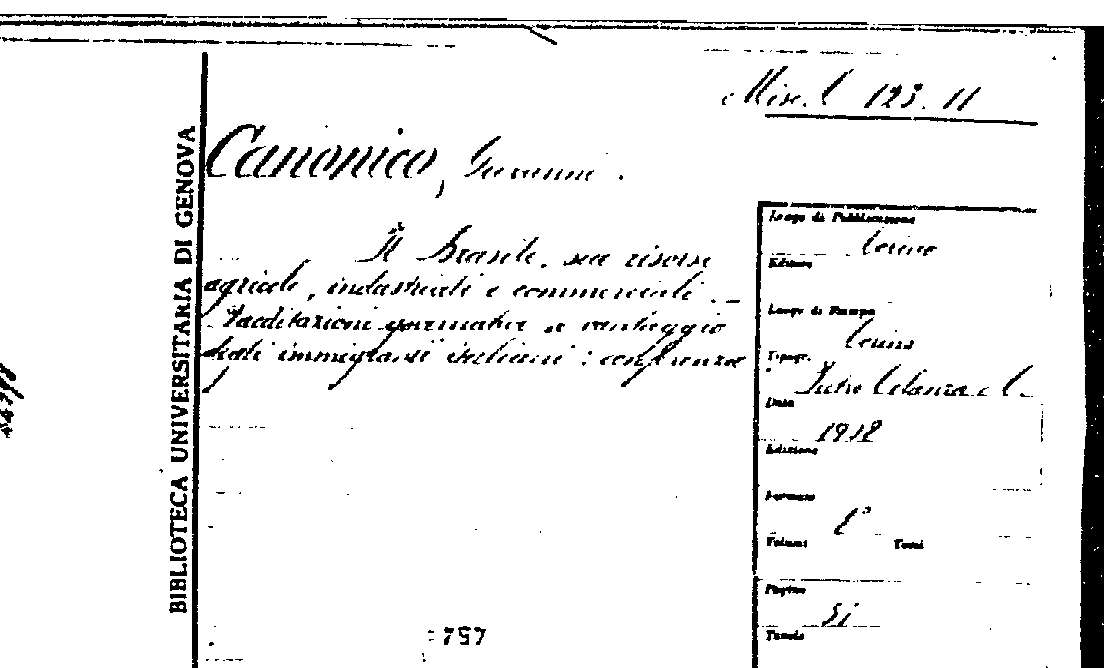 Misc. L 123. 11
Canonico, Giovanni.
Il Brasile, sue risorse
agricole, industriali e commerciali. -
Facilitazioni governative a vantaggio
degli immigranti italiani: conferenza
BIBLIOTECA UNIVERSITARIA DI GENOVA
Luogo di Pubblicazione
Torino
Editore
Luogo di Stampa
Torino
Tipogr.
Pietro Celanza e C.
Data
1912
Edizione
Formato
8°
Volumi Tomi
Pagine
51
Tavole
757